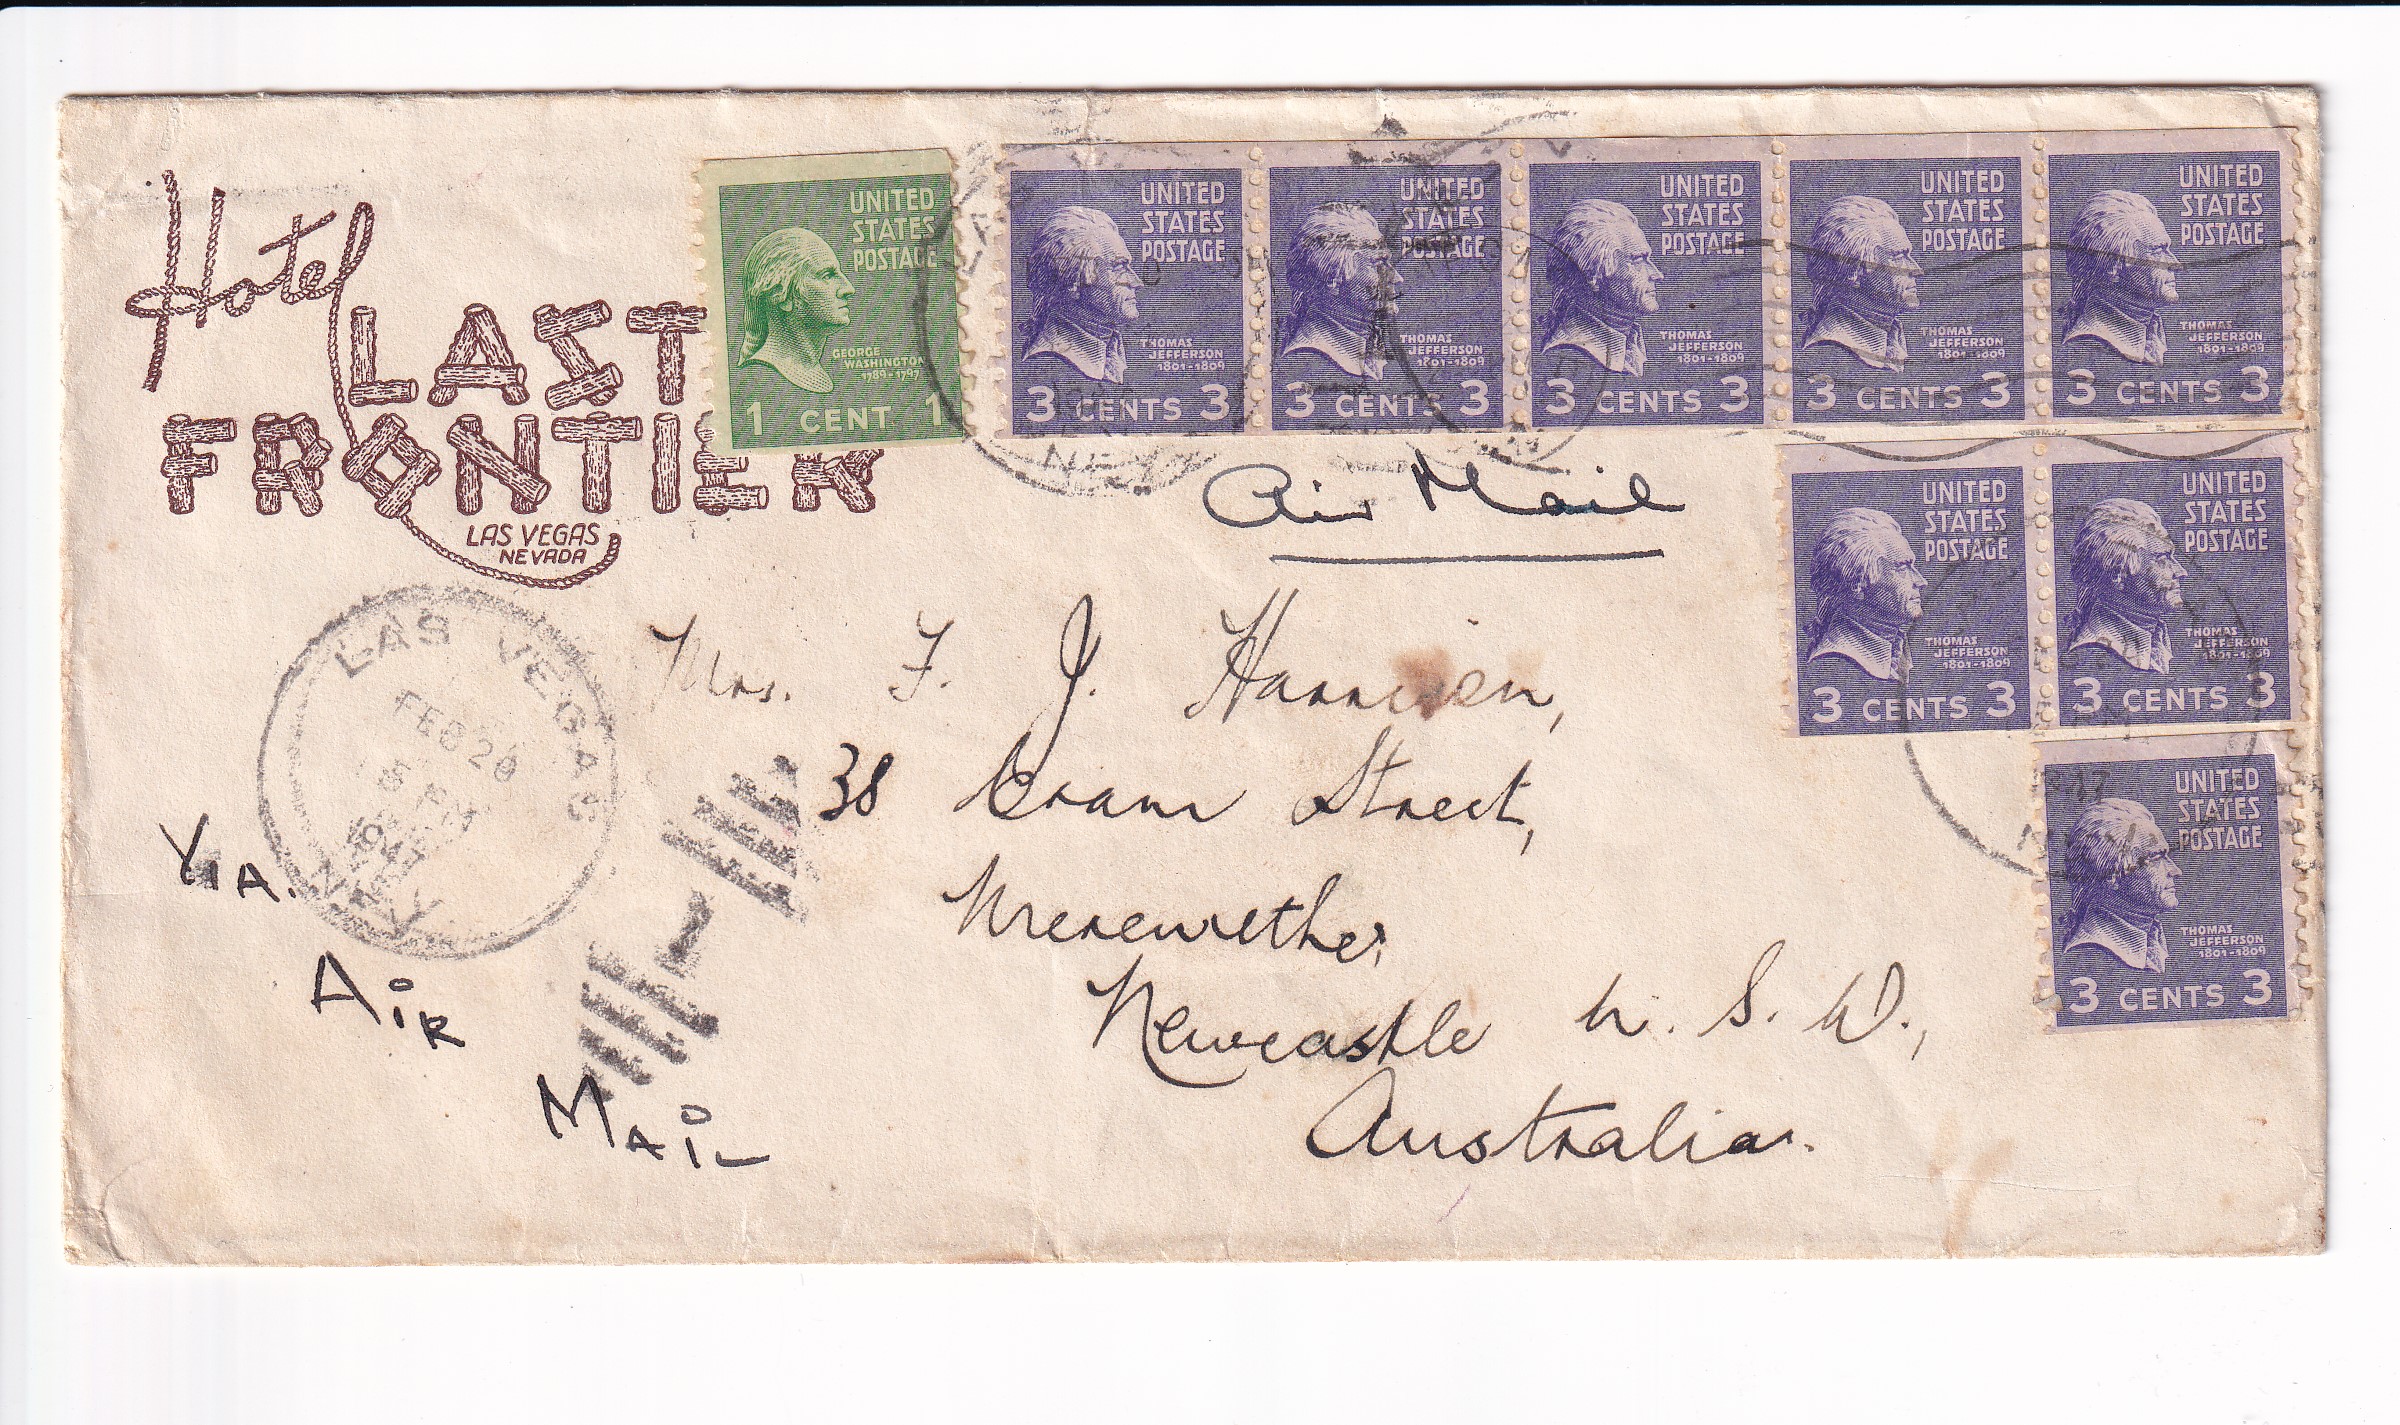 Hotel
LAST
FRONTIER
LAS VEGAS
NEVADA
UNITED
STATES
POSTAGE
GEORGE
WASHINGTON
1789-1797
1 CENT 1
UNITED
STATES
POSTAGE
THOMAS
JEFFERSON
1801-1809
3 CENTS 3
UNITED
STATES
POSTAGE
THOMAS
JEFFERSON
1801-1809
3 CENTS 3
UNITED
STATES
POSTAGE
THOMAS
JEFFERSON
1801-1809
3 CENTS 3
UNITED
STATES
POSTAGE
THOMAS
JEFFERSON
1801-1809
3 CENTS 3
UNITED
STATES
POSTAGE
THOMAS
JEFFERSON
1801-1809
3 CENTS 3
UNITED
STATES
POSTAGE
THOMAS
JEFFERSON
1801-1809
3 CENTS 3
UNITED
STATES
POSTAGE
THOMAS
JEFFERSON
1801-1809
3 CENTS 3
UNITED
STATES
POSTAGE
THOMAS
JEFFERSON
1801-1809
3 CENTS 3
Air Mail
LAS VEGAS
FEB 20
PM
1947
NEV
Mrs. F. J. Harrison,
38 Cram Street,
Merewether
Newcastle N. S. W.,
Australia.
VIA.
AiR
MAiL